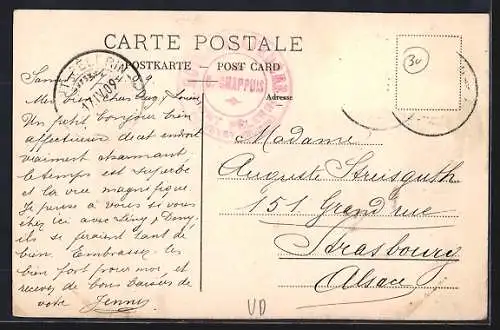 CARTE POSTALE
POSTKARTE — POST CARD
Adresse
MT PELERIN
17 IV 09
CHAPPUIS
30
Mes bien chers Guy, Louise,
Un petit bonjour bien
affectueux de cet endroit
vraiment charmant
le temps est superbe
et la vue magnifique.
Je pense à vous si vous
étiez ici avec
ils se feraient tant de
bien. Embrassez les
bien fort pour moi, et
recevez de bons baisers de
votre Jenny
Madame
Auguste Streisguth
151 Grand rue
Strasbourg
Alsace
VD